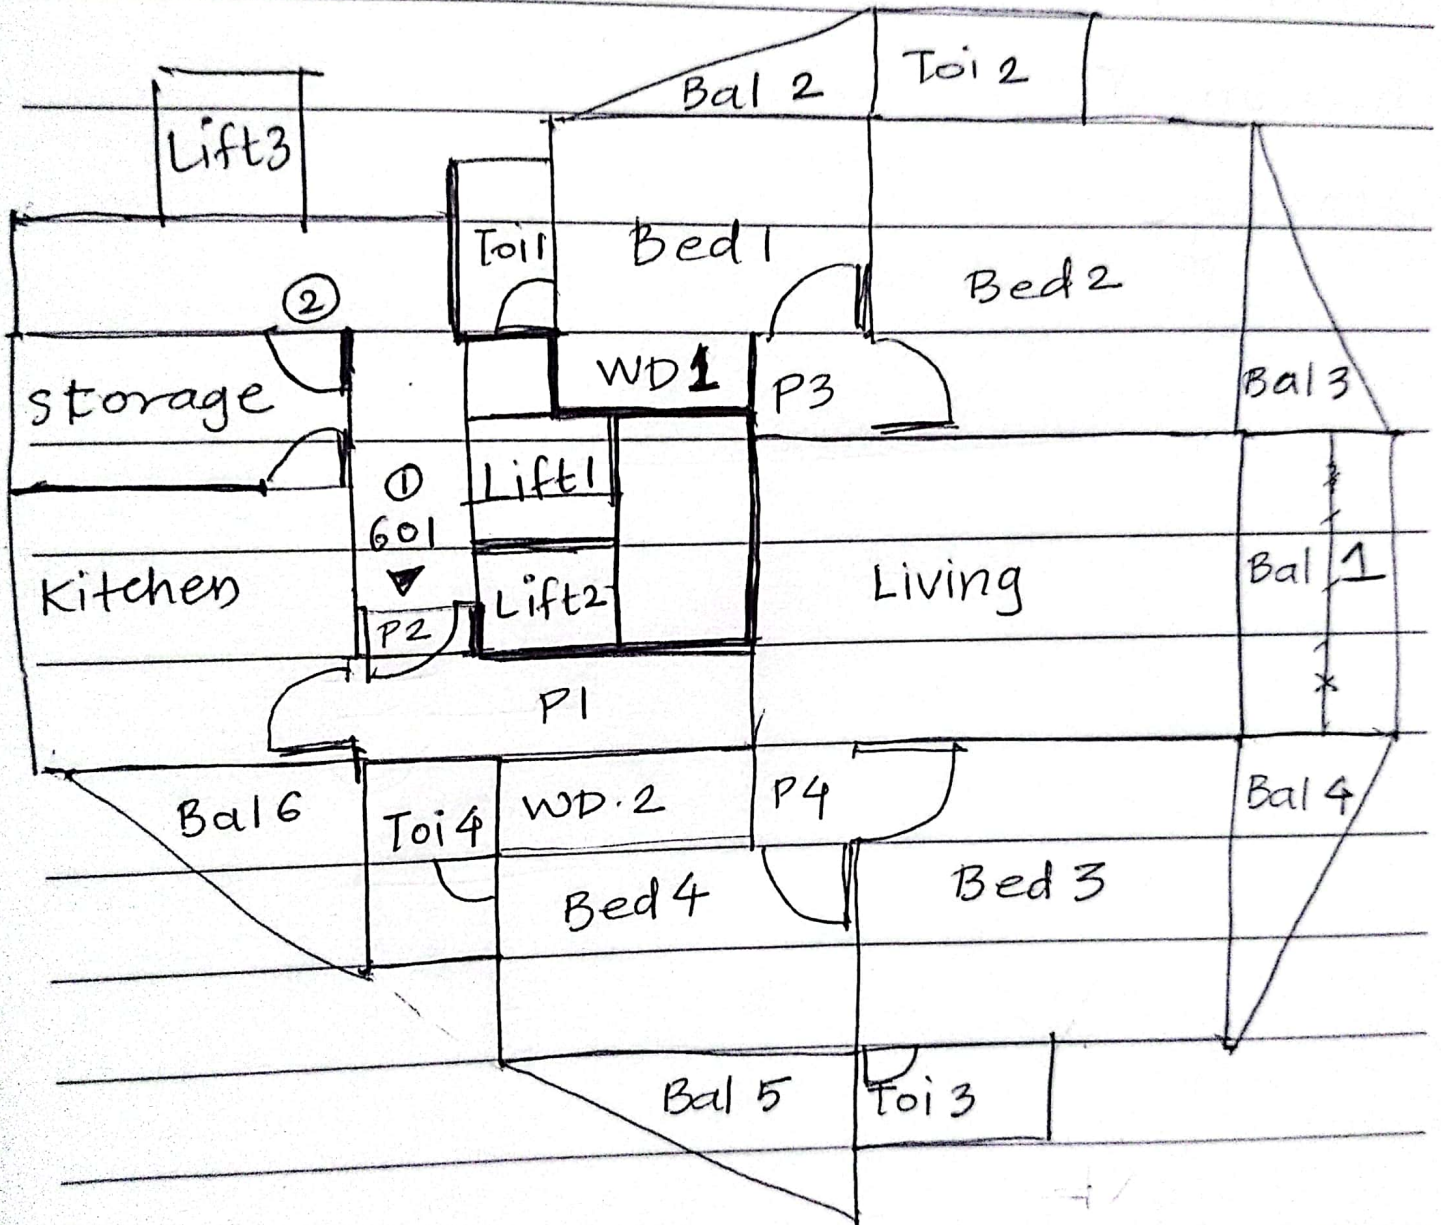 Bal 2
Toi 2
Lift3
Toi1
Bed 1
Bed 2
②
Storage
WD 1
P3
Bal 3
①
601
Lift1
Kitchen
Lift2
P2
Living
Bal 1
P1
Bal 6
Toi 4
WD.2
P4
Bal 4
Bed 4
Bed 3
Bal 5
Toi 3